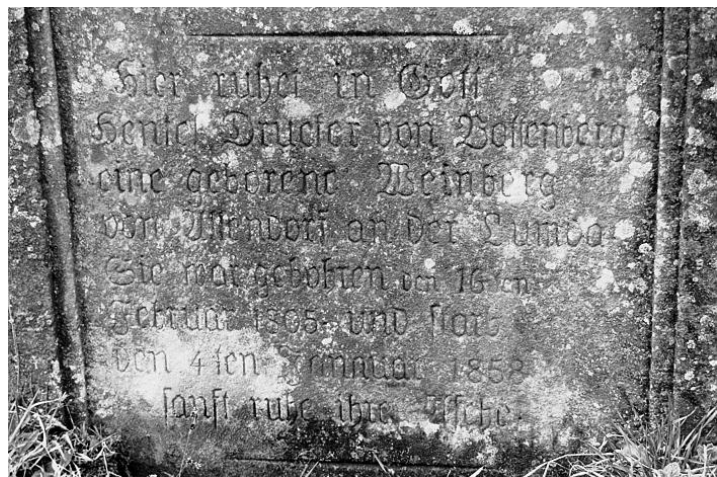 Hier ruhet in Gott
Hentel Drucker von Bottenberg
eine geborene Weinberg
von Allendorf an der Lumda
Sie war gebohren den 16ten
Februar 1805 und starb
den 4ten Januar 1858
sanft ruhe ihre Asche.